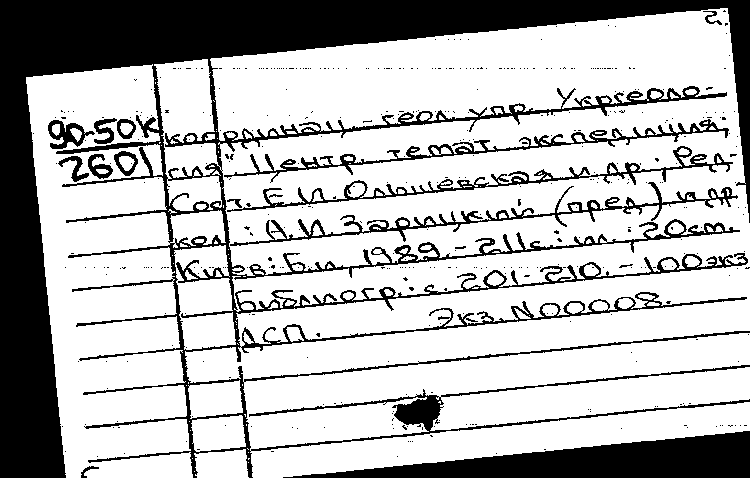 2.
90-50к
2601
координац.-геол. упр. "Укргеоло-
гия" Центр. темат. экспедиция;
Сост. Е.И. Ольшевская и др; Ред-
кол.: А.И. Зарицкий (пред) и др-
Киев: Б.и, 1989.-211с.: ил.; 20см.
Библиогр.: с. 201-210. - 100экз
ДСП. Экз. N00008.